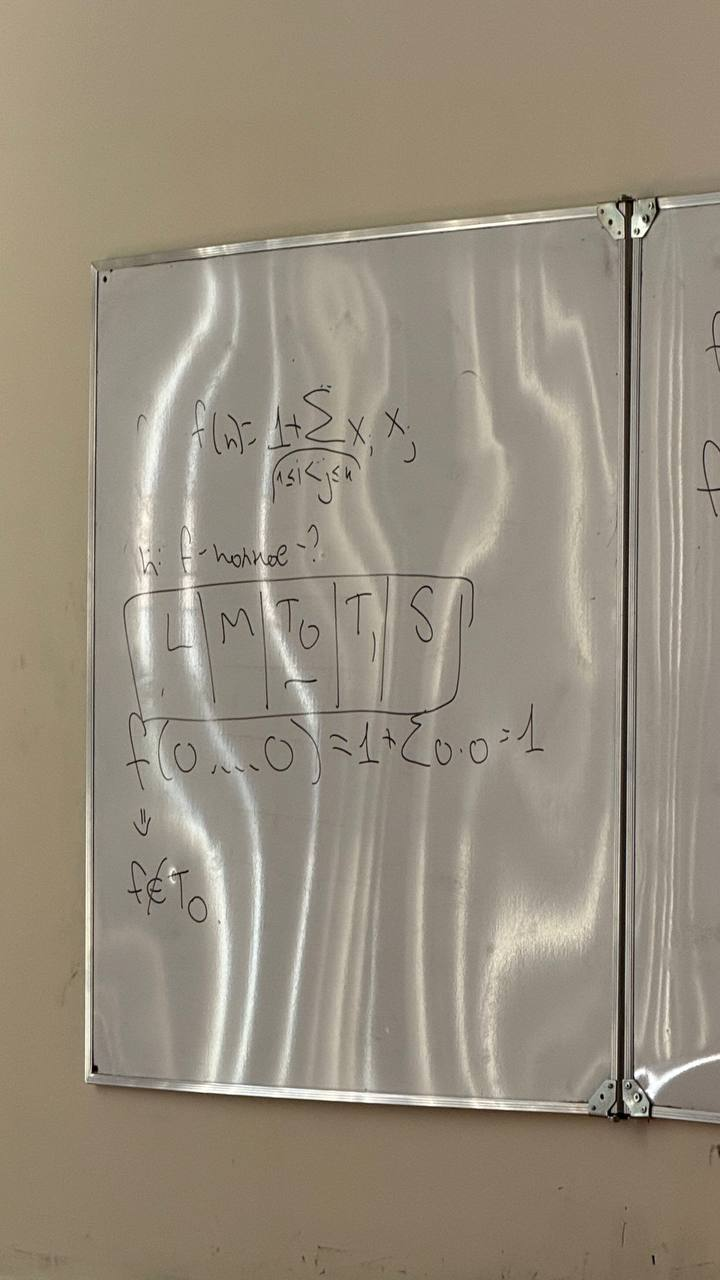 f(n)= 1+∑ xᵢ xⱼ
1≤i<j≤n
n: f-полное-?
L | M | T₀ | T₁ | S
–
f(0...0)=1+∑0·0=1
⇓
f∉T₀